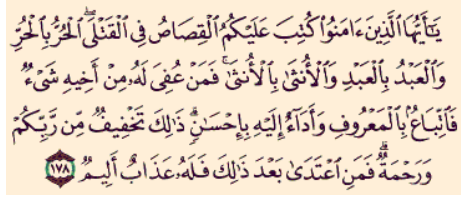 يَـٰٓأَيُّهَا ٱلَّذِينَ ءَامَنُوا۟ كُتِبَ عَلَيْكُمُ ٱلْقِصَاصُ فِى ٱلْقَتْلَى ۖ ٱلْحُرُّ بِٱلْحُرِّ
وَٱلْعَبْدُ بِٱلْعَبْدِ وَٱلْأُنثَىٰ بِٱلْأُنثَىٰ ۚ فَمَنْ عُفِىَ لَهُۥ مِنْ أَخِيهِ شَىْءٌ
فَٱتِّبَاعٌۢ بِٱلْمَعْرُوفِ وَأَدَآءٌ إِلَيْهِ بِإِحْسَـٰنٍ ۗ ذَٰلِكَ تَخْفِيفٌ مِّن رَّبِّكُمْ
وَرَحْمَةٌ ۗ فَمَنِ ٱعْتَدَىٰ بَعْدَ ذَٰلِكَ فَلَهُۥ عَذَابٌ أَلِيمٌ ١٧٨